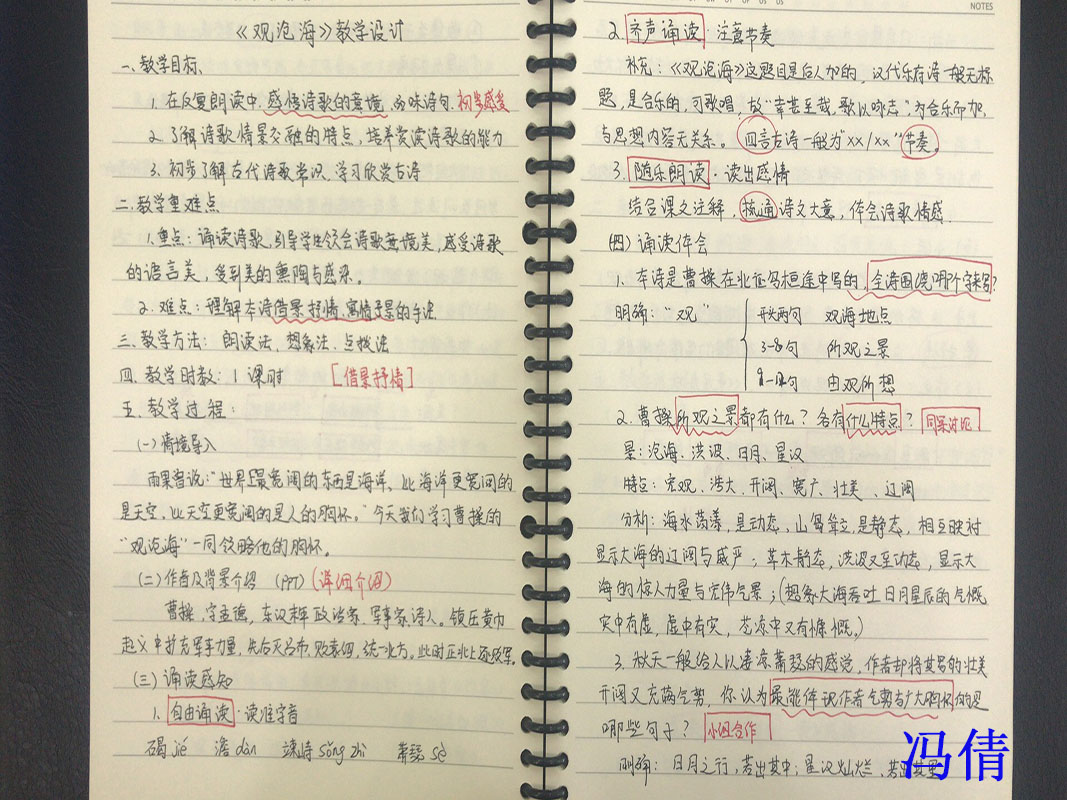 《观沧海》教学设计
一、教学目标、
1. 在反复朗读中,感悟诗歌的意境,品味诗句,初步感受
2. 了解诗歌情景交融的特点,培养赏读诗歌的能力
3. 初步了解古代诗歌常识,学习欣赏古诗
二.教学重难点
1.重点:诵读诗歌,引导学生领会诗歌意境美,感受诗歌
的语言美,受到美的熏陶与感染。
2. 难点:理解本诗借景抒情、寓情于景的手法
三.教学方法:朗读法,想象法,点拨法
四.教学时数:1课时 [借景抒情]
五.教学过程:
(一)情境导入
雨果曾说:“世界上最宽阔的东西是海洋、比海洋更宽阔的
是天空,比天空更宽阔的是人的胸怀。”今天我们学习曹操的
“观沧海”一同领略他的胸怀。
(二)作者及背景介绍 (PPT)(详细介绍)
曹操,字孟德,东汉末年政治家、军事家、诗人。镇压黄巾
起义中扩充军事力量,先后灭吕布,败袁绍,统一北方。此时正北上
(三)诵读感知
1. 自由诵读·读准字音
碣jié 澹dàn 竦峙sǒng zhì 萧瑟sè
NOTES
2. 齐声诵读·注意节奏
补充:《观沧海》这题目是后人加的,汉代乐府诗一般无标
题,是合乐的,可歌唱,故“幸甚至哉,歌以咏志”,为合乐而加,
与思想内容无关系。四言古诗一般为“xx/xx”节奏。
3. 随乐朗读·读出感情
结合课文注释,梳通诗文大意,体会诗歌情感
(四)诵读体会
1. 本诗是曹操在北征乌桓途中写的,全诗围绕哪个字来写?
明确:“观” 开头两句 观海地点
3-8句 所观之景
9-12句 由观所想
2. 曹操所观之景都有什么?各有什么特点? 同桌讨论
景:沧海、洪波、日月、星汉
特点:宏观、浩大、开阔、宽广、壮美、辽阔
分析:海水荡漾,是动态,山岛耸立是静态,相互映衬
显示大海的辽阔与威严;草木静态,洪波又至动态,显示大
海的惊人力量与宏伟气景;(想象大海吞吐日月星辰的气慨
实中有虚,虚中有实,苍凉中又有慷慨。)
3. 秋天一般给人以凄凉萧瑟的感觉,作者却将其写的壮美
开阔又充满气势,你认为最能体现作者气势与广大胸怀的是
哪些句子? 小组合作
明确:日月之行,若出其中;星汉灿烂,若出其里
冯倩